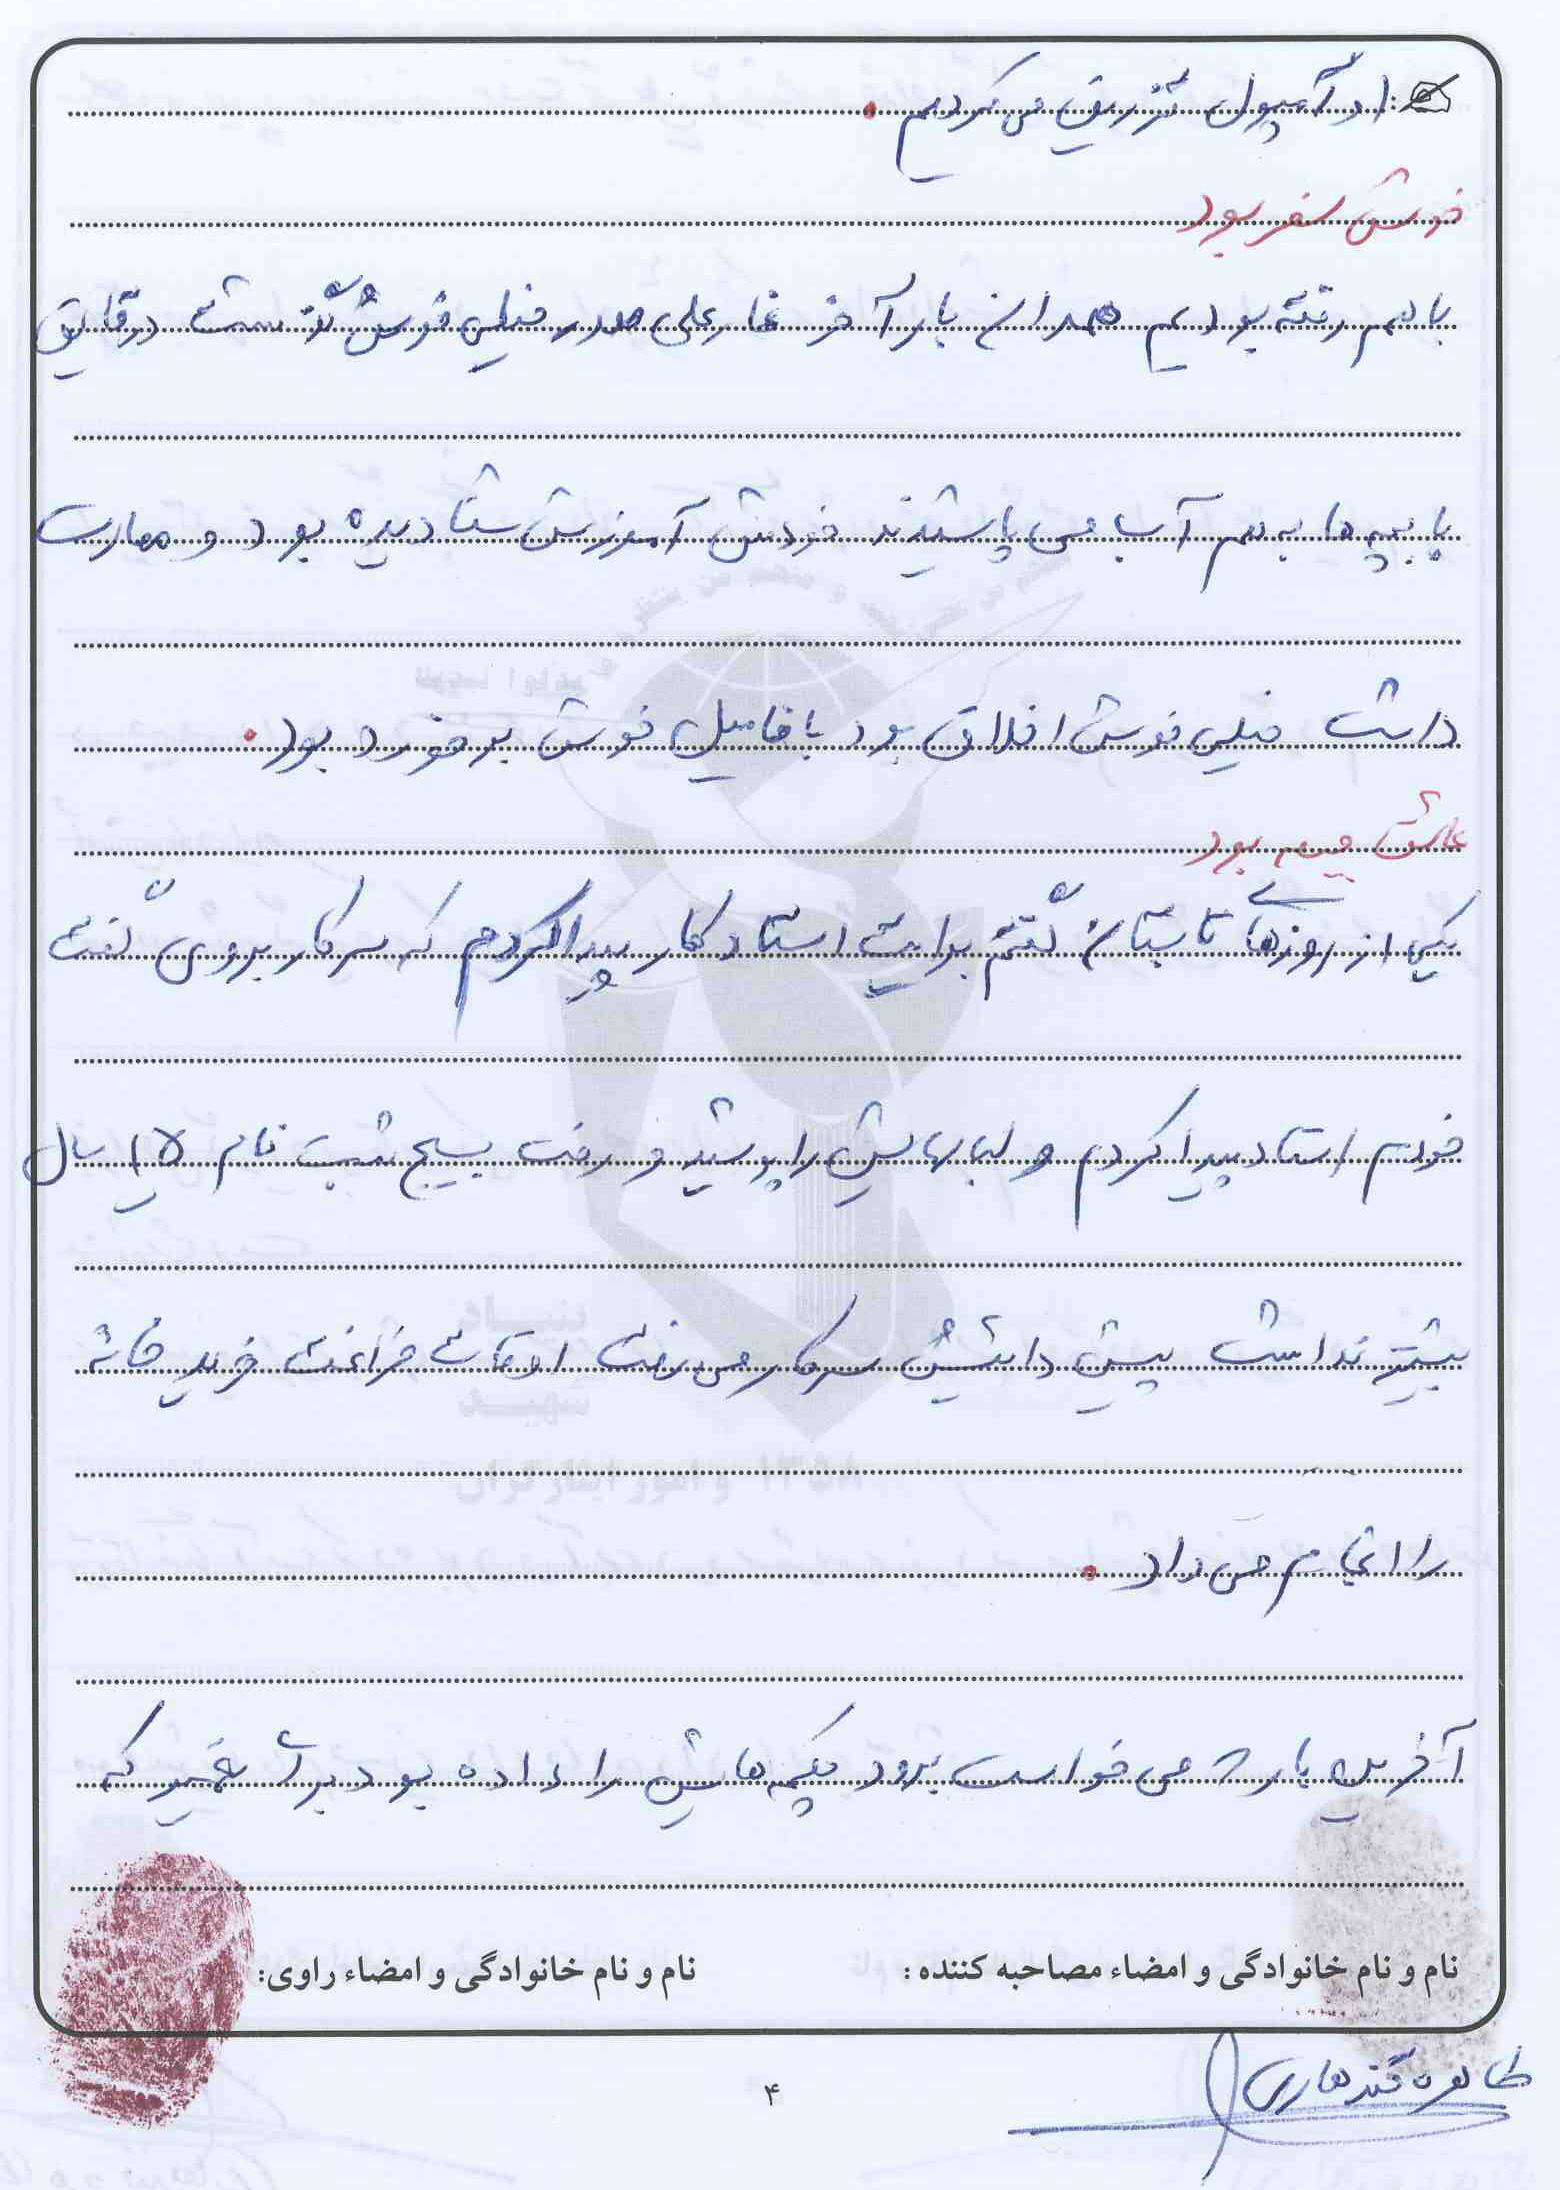 او آمپول تزریق می کردیم.
خوش سفر بود
با هم رفته بودیم همدان بار آخر غار علی صدر خیلی خوش گذشت در قایق
با بچه ها به هم آب می پاشیدند خودش آموزش شنا دیده بود و مهارت
داشت خیلی خوش اخلاق بود با فامیل خوش برخورد بود.
عاشق جبهه بود
یکی از روزهای تابستان گفتم برایت استاد کار پیدا کردم که سر کار بروی گفت
خودم استاد پیدا کردم و لباسهایش را پوشید و رفت بسیج ثبت نام ۱۵ سال
بیشتر نداشت پیش دائیش سر کار می رفت اوقات فراغت خرید خانه
را انجام می داد.
آخرین بار که می خواست برود چکمه هایش را داده بود برای تعمیر که
نام و نام خانوادگی و امضاء مصاحبه کننده : نام و نام خانوادگی و امضاء راوی:
طاهره قندهاری
۴
بنیاد
شهید
و امور ایثارگران ۱۳۵۸